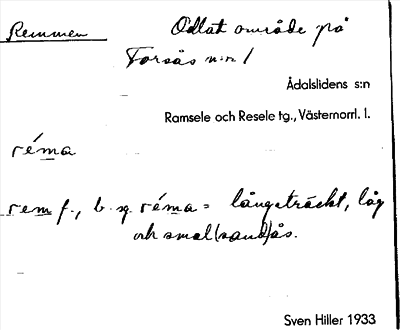 Remmen Odlat område på
Torsås n:r 1
Ådalslidens s:n
Ramsele och Resele tg., Västernorrl. l.
réma
rem f., b. sg. réma = långsträckt, låg
och smal (sand)ås.
Sven Hiller 1933